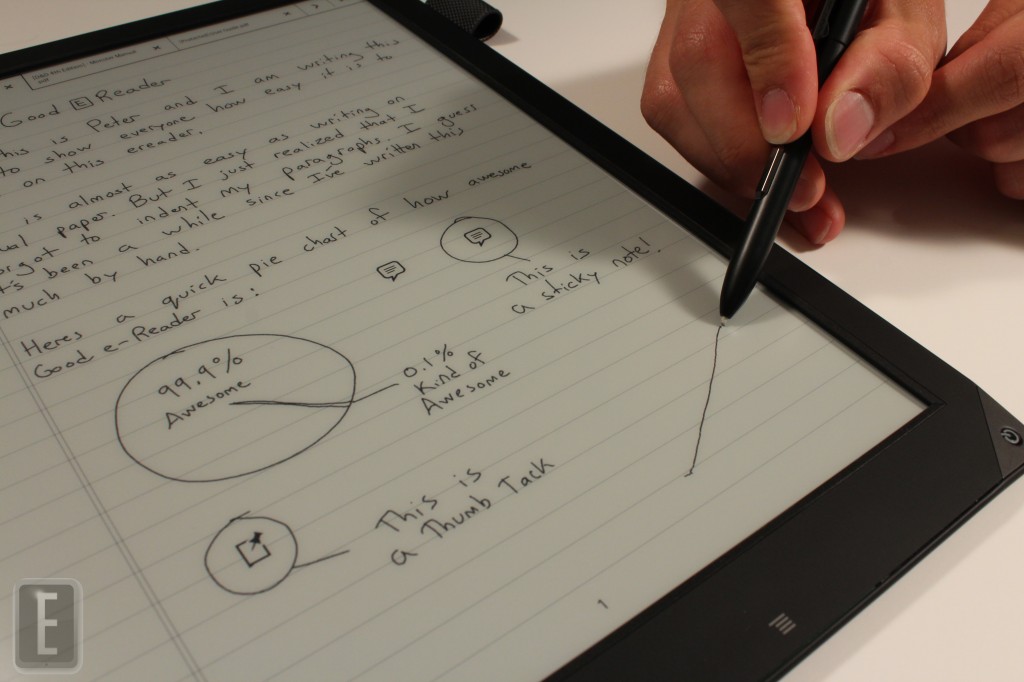 Good E Reader
This is Peter and I am writing this
to show everyone how easy it is to
on this ereader.
is almost as easy as writing on
paper. But I just realized that I
to indent my paragraphs. I guess
been a while since I've written this
much by hand.
Heres a quick pie chart of how awesome
Good e-Reader is!
This is
a sticky note!
99.9%
Awesome
0.1%
Kind of
Awesome
This is
a Thumb Tack
1
E